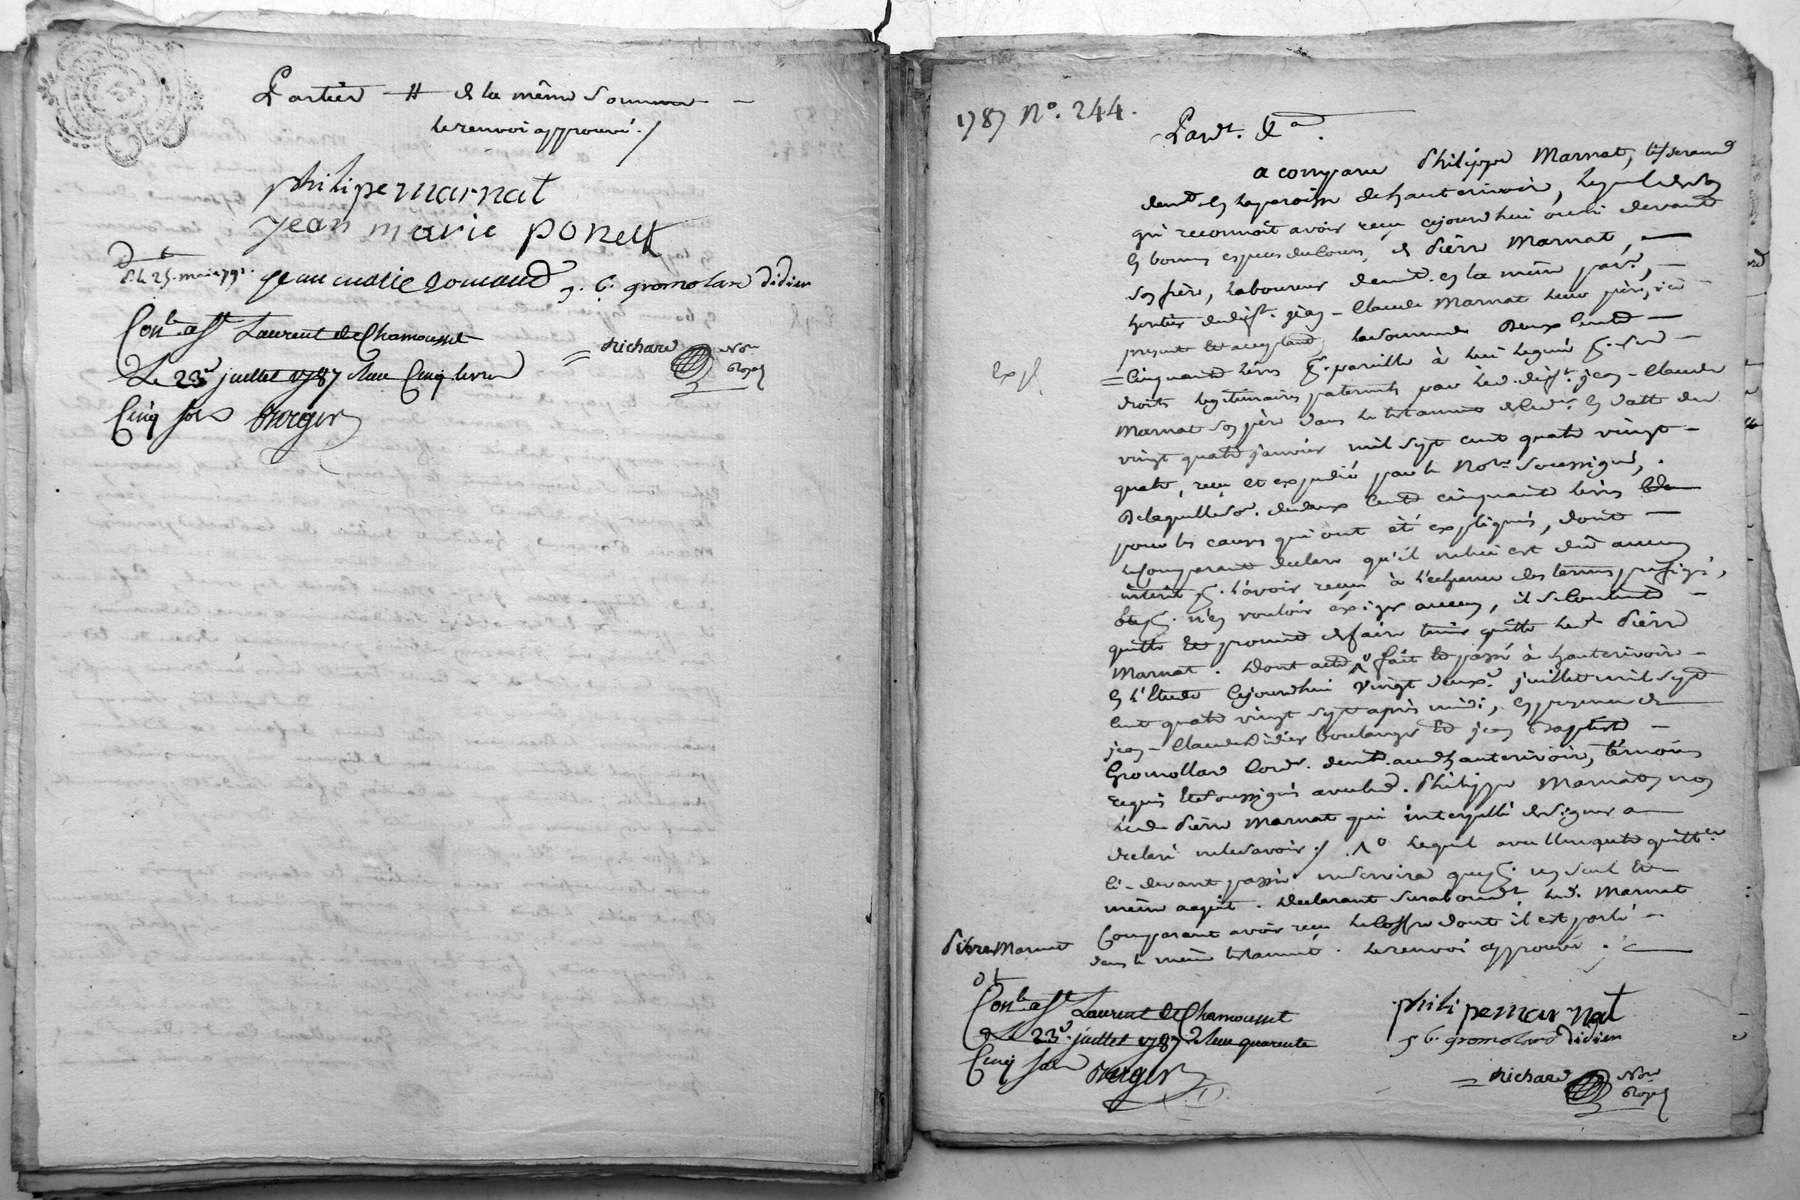 L'artier # de la même Somme
le renvoi approuvé ./
philipe marnat
jean marie ponet
d. le 25. mai 1791. jean marie j. b. gromolard didier
Con.le a St Laurent de Chamousset
Le 23e juillet 1787 Reçu Cinq livres
Cinq sols Berger
= Richard Nore
Royal
1787 N°. 244.
Pardt. &a.
a comparu Philippe Marnat, tisserand
demt. en la paroisse de hauterivoire, lequel de gré
qui reconnoît avoir reçu cejourd'hui devant
en bonnes especes du cours, de Pierre Marnat, —
son frère, laboureur demt. en la même par.e, —
héritier dudt. jean-Claude Marnat leur père, ici
présent et acceptant, la somme de Deux Cents —
exp.
= Cinquante livres pr. pareille à lui léguée pr. ses —
droits légitimaires paternels par led. jean-Claude
Marnat son père dans le testament en datte du
vingt quatre janvier mil sept cent quatre vingt —
quatre, reçu et expédié par le Nore. Soussigné, .
De laquelle so. de deux Cents cinquante livres
pour les causes qui ont été expliqués, dont —
le comparant declare qu'il ne lui est dû aucun
intérêt pr. l'avoir reçu à l'echeance des termes préfigés,
n'en vouloir exiger aucun, il se contente —
quitte et promet de faire tenir quitte led. Pierre
Marnat. Dont acte fait et passé à hauterivoire —
en l'Etude Cejourd'hui vingt deuxe. juillet mil sept
cent quatre vingt sept après midi, en presence de
jean-Claude Didier boulanger et jean Baptiste —
Gromollard Cordr. demt. aud. hauterivoire, témoins
requis et soussignés avec led. Philippe Marnat, non
led. Pierre Marnat qui interpellé de signer a —
declaré ne le savoir ./. lequel avec l'
ci-devant passée ne servira que pr. un seul et
même acquit. Declarant led. Marnat
Comparant avoir reçu le coffre dont il est parlé —
dans le même testament. le renvoi approuvé .
Pierre Marnat
Con.le a St Laurent de Chamousset
Le 23e. juillet 1787 Reçu quarente
Cinq sols Berger
philipe marnat
j b. gromolard didier
= Richard Nore
Royal